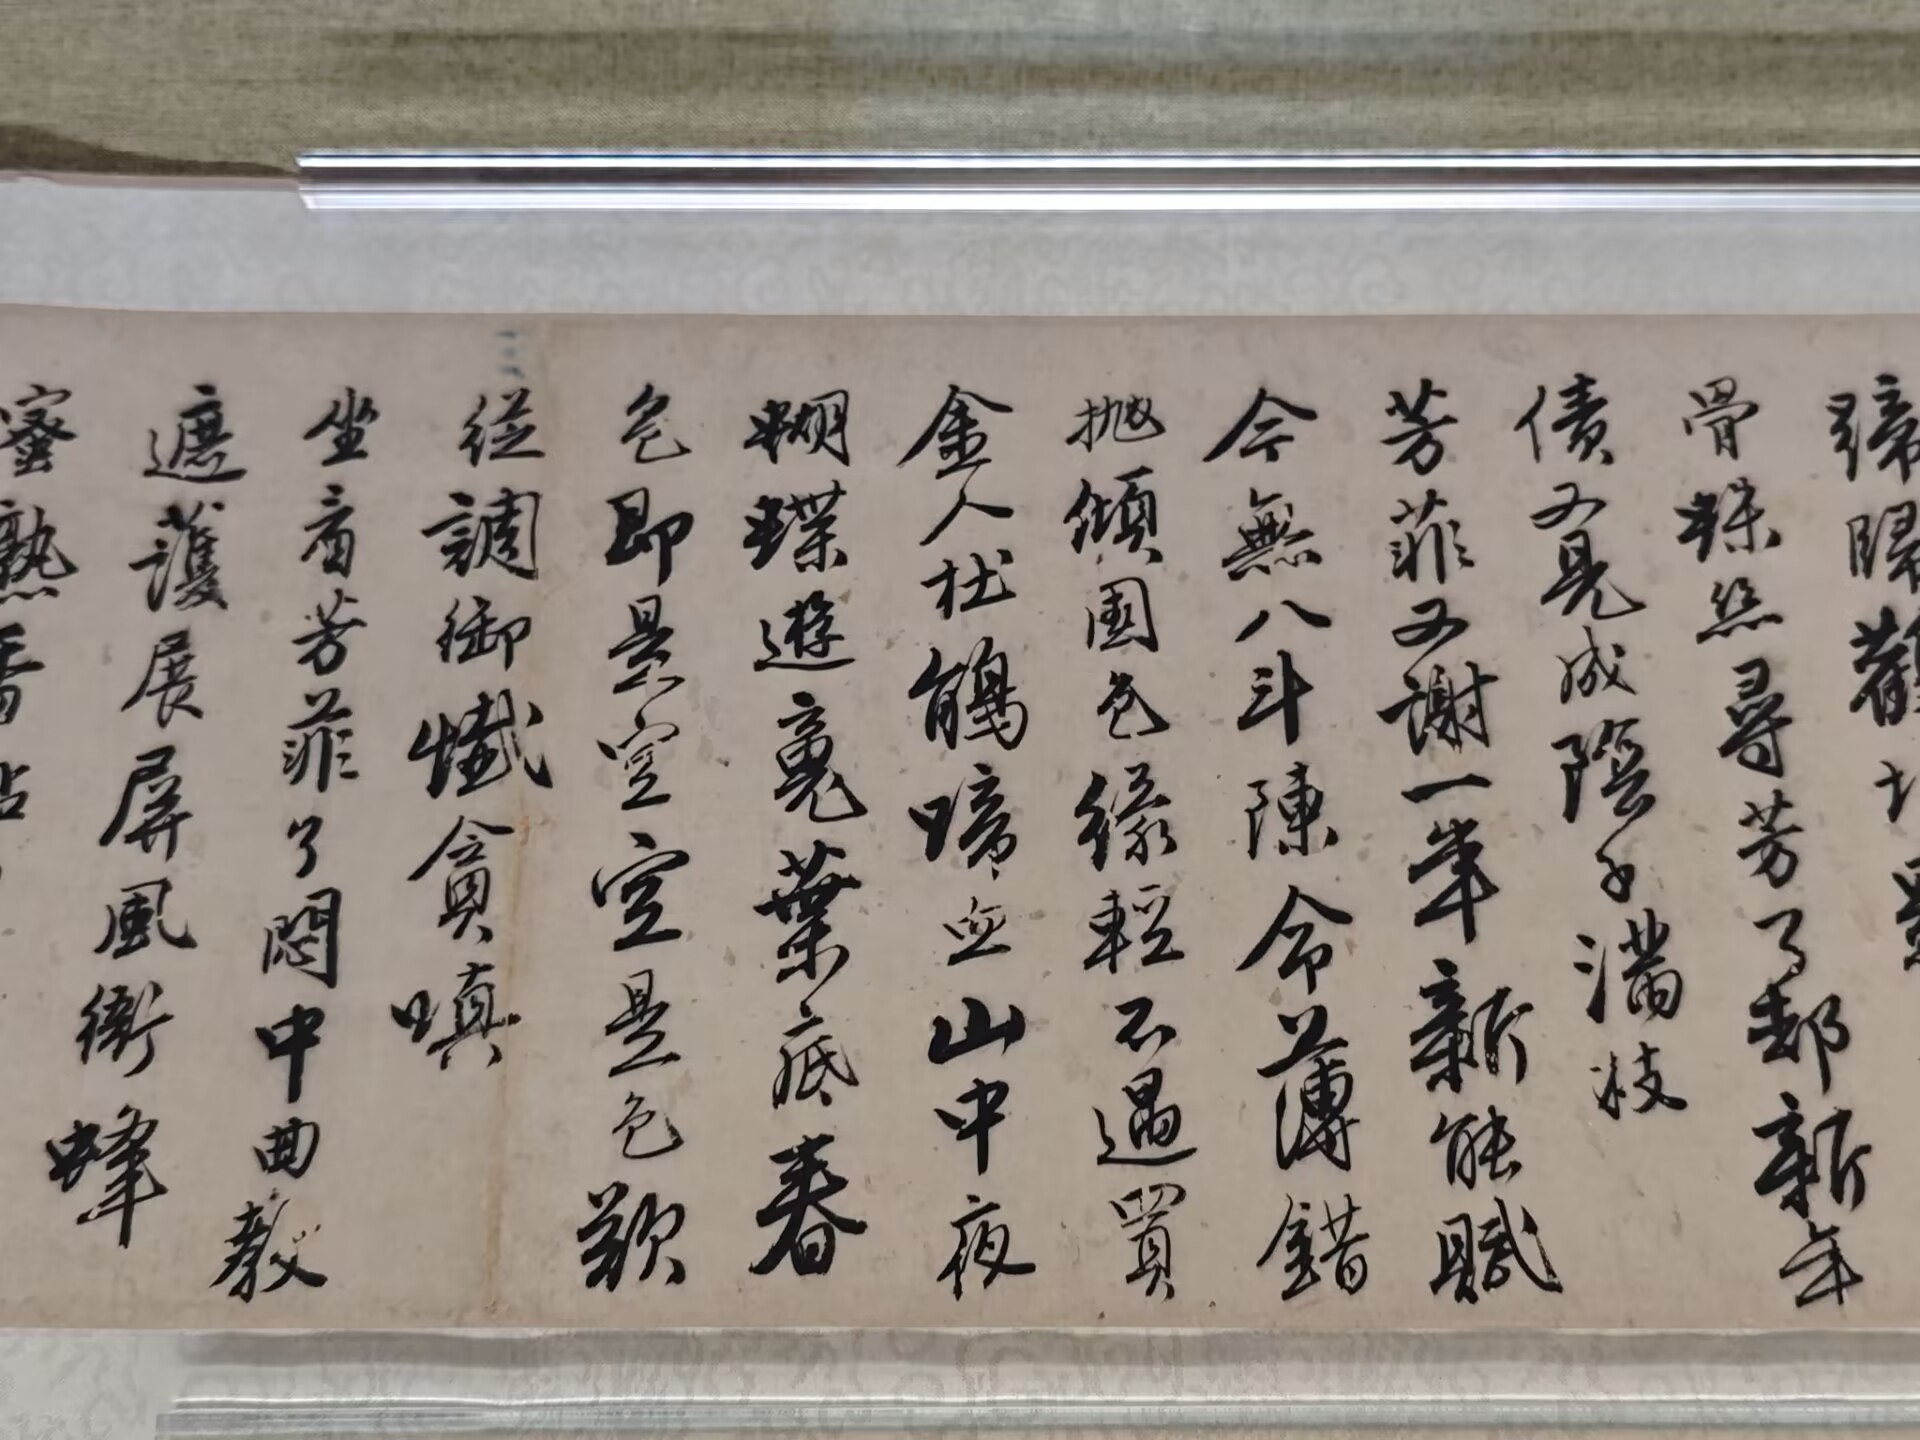 蹄歸觀
骨蛛絲尋芳了却新年
債又見成陰子滿枝
芳菲又謝一年新能賦
今無八斗陳命薄錯
抛傾國色緣輕不遇買
金人杜鵑啼血山中夜
蝴蝶遊魂葉底春
色即是空空是色欲
從調御懺貪嗔
坐看芳菲了悶中曲教
遮護展屏風銜蜂
蜜熟香粘